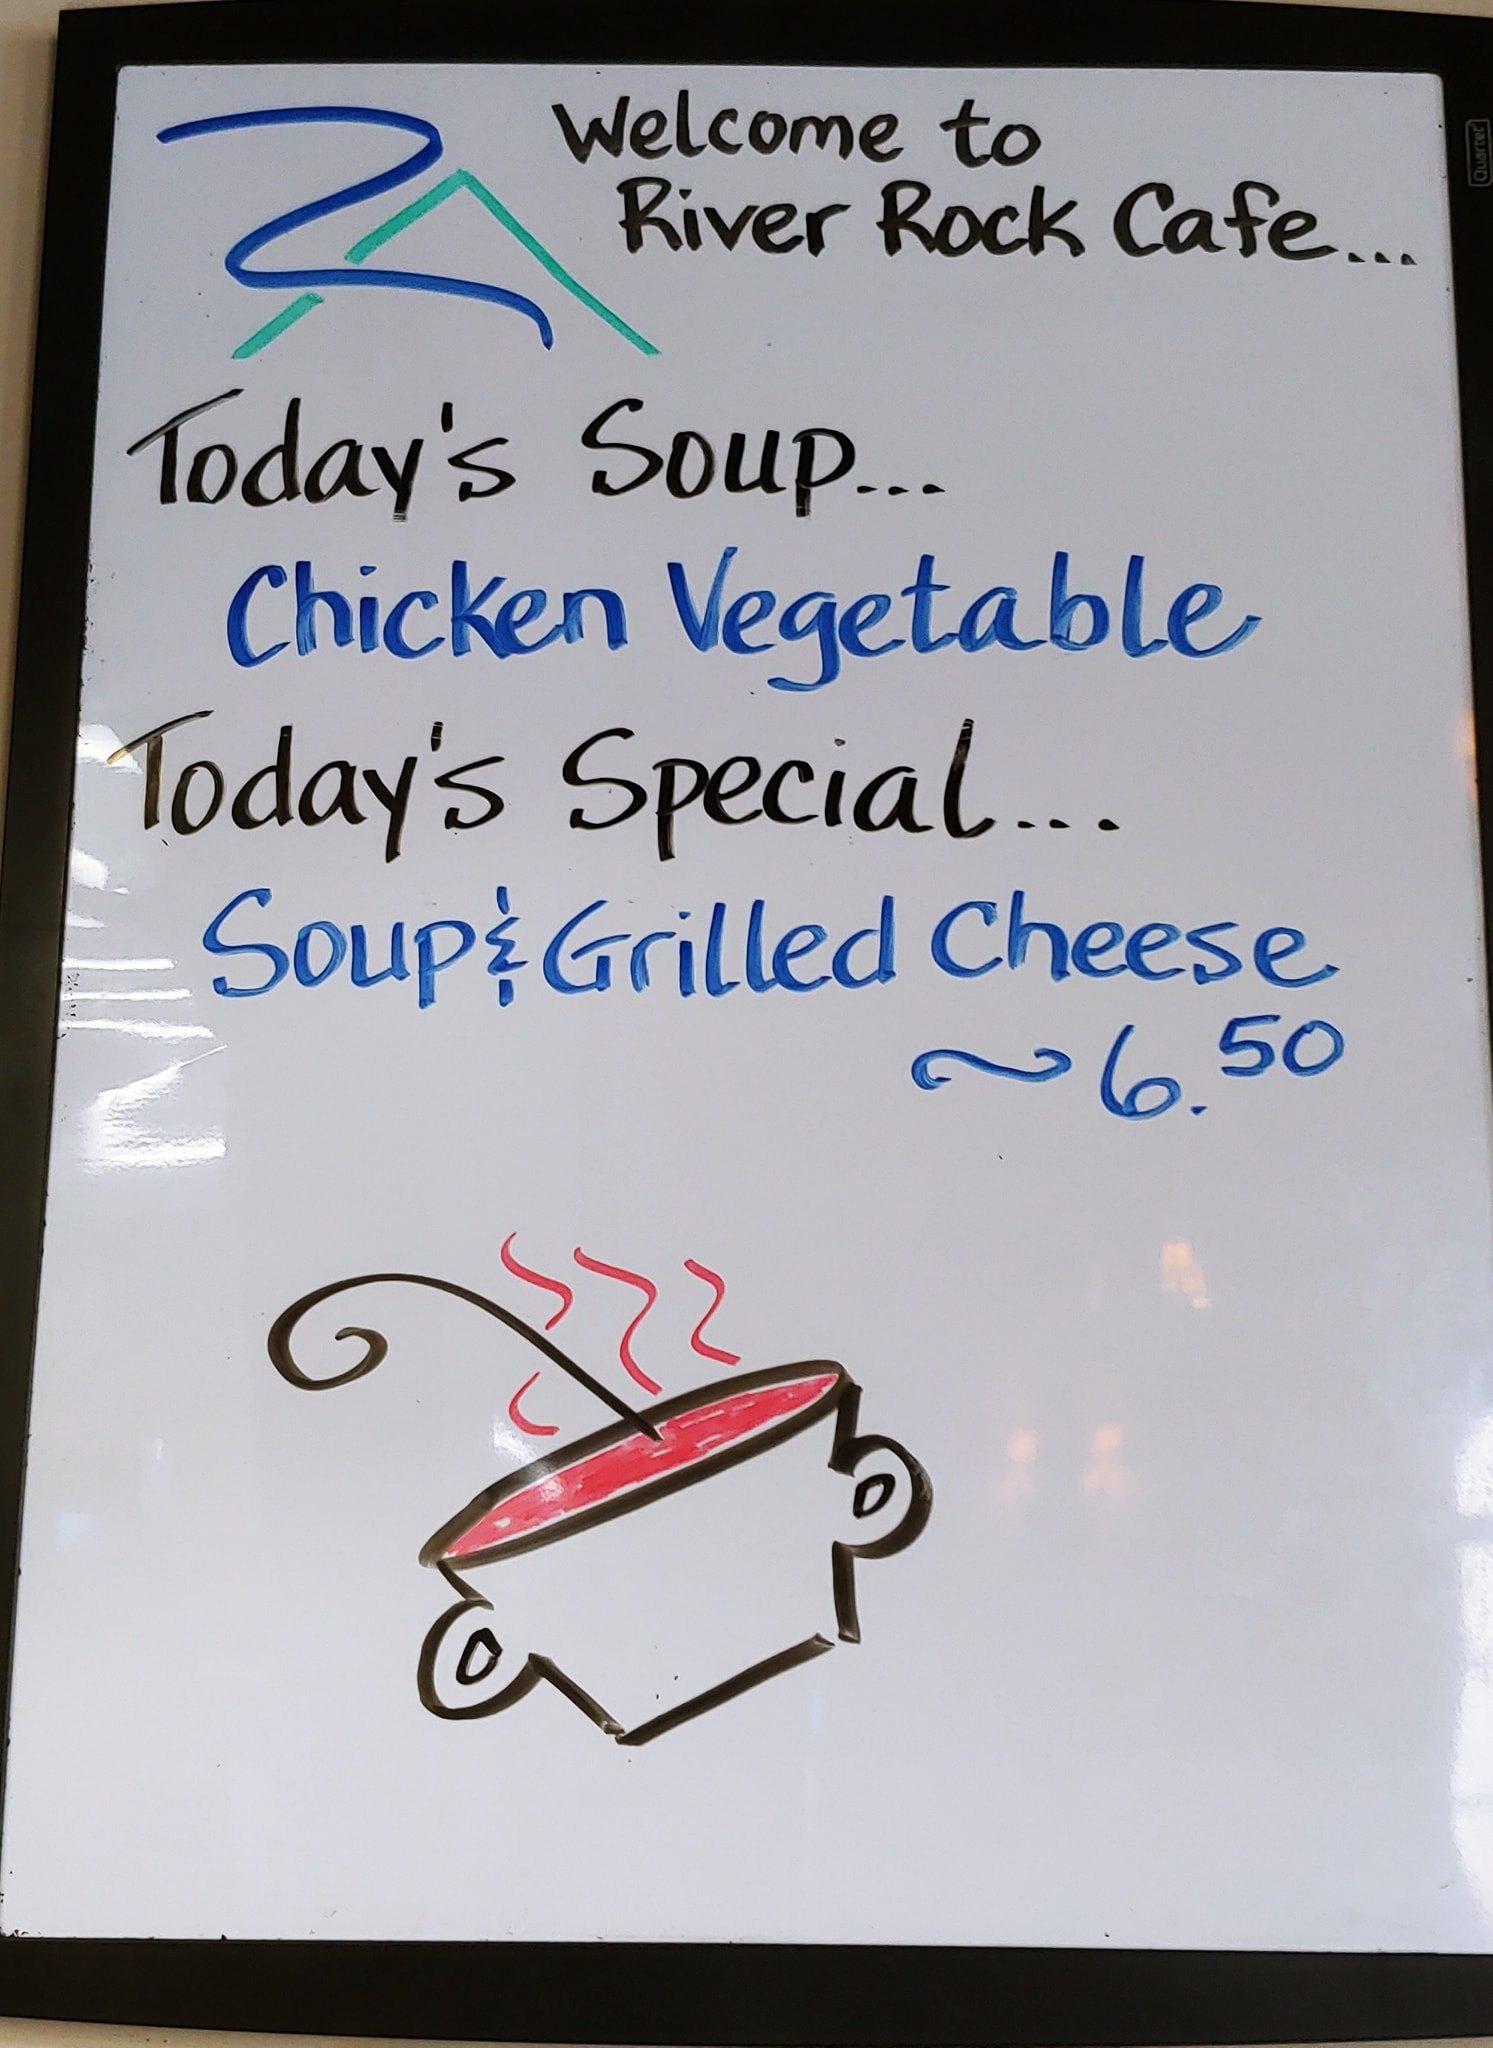 Welcome to
River Rock Cafe...
Today's Soup...
Chicken Vegetable
Today's Special...
Soup & Grilled Cheese
~ 6.50
Quartet